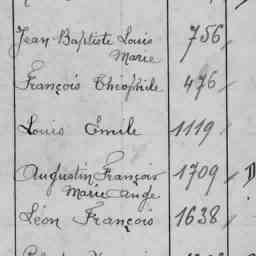 Jean-Baptiste Louis 756
Marie
François Théophile 476
Louis Emile 1119
Augustin François 1709
Marie Ange
Léon François 1638